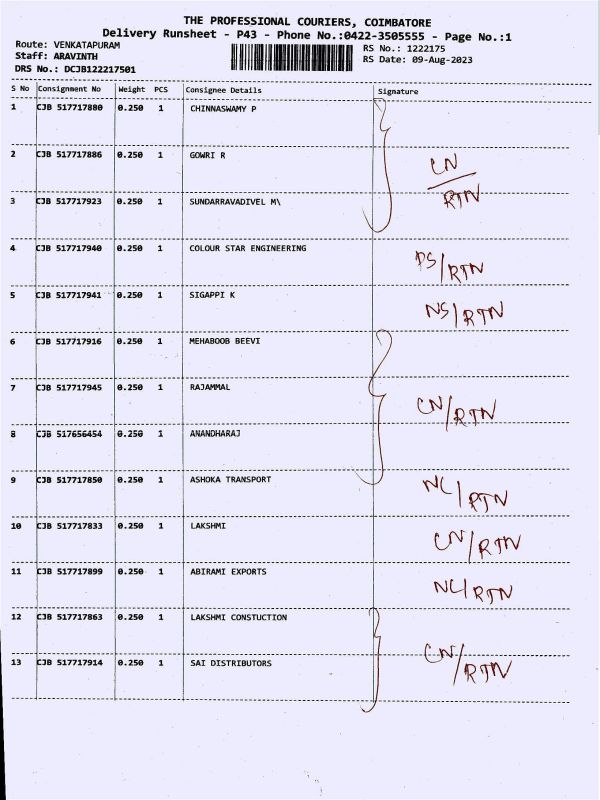 THE PROFESSIONAL COURIERS, COIMBATORE
Delivery Runsheet - P43 - Phone No.:0422-3505555 - Page No.:1
Route: VENKATAPURAM
Staff: ARAVINTH
DRS No.: DCJB122217501
RS No.: 1222175
RS Date: 09-Aug-2023
S No Consignment No Weight PCS Consignee Details Signature
1 CJB 517717880 0.250 1 CHINNASWAMY P
2 CJB 517717886 0.250 1 GOWRI R
CN
RTN
3 CJB 517717923 0.250 1 SUNDARRAVADIVEL M\
4 CJB 517717940 0.250 1 COLOUR STAR ENGINEERING
DS/RTN
5 CJB 517717941 0.250 1 SIGAPPI K
NS/RTN
6 CJB 517717916 0.250 1 MEHABOOB BEEVI
7 CJB 517717945 0.250 1 RAJAMMAL
CN/RTN
8 CJB 517656454 0.250 1 ANANDHARAJ
9 CJB 517717850 0.250 1 ASHOKA TRANSPORT
NC/RTN
10 CJB 517717833 0.250 1 LAKSHMI
CN/RTN
11 CJB 517717899 0.250 1 ABIRAMI EXPORTS
NC/RTN
12 CJB 517717863 0.250 1 LAKSHMI CONSTUCTION
13 CJB 517717914 0.250 1 SAI DISTRIBUTORS
CN/RTN